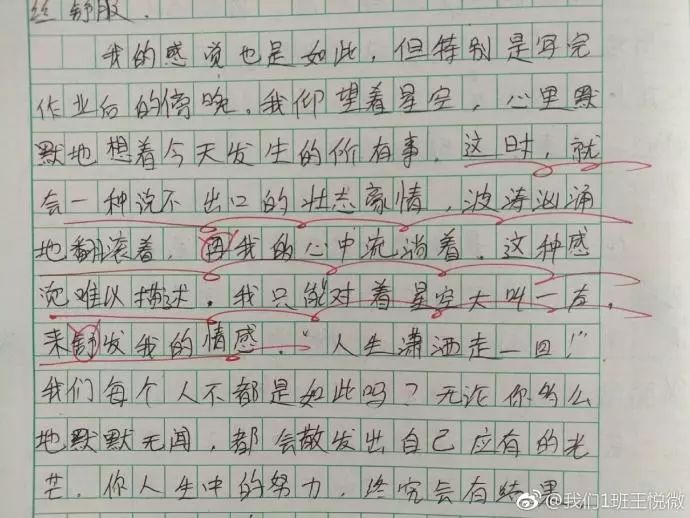 丝舒服.
我的感觉也是如此,但特别是写完
作业后的傍晚。我仰望着星空,心里默
默地想着今天发生的所有事。这时,就
会一种说不出口的壮志豪情,波涛汹涌
地翻滚着,再我的心中流淌着。这种感
觉难以描述。我只能对着星空大叫一声,
来舒发我的情感。“人生潇洒走一回!”
我们每个人不都是如此吗?无论你多么
地默默无闻,都会散发出自己应有的光
芒。你人生中的努力,终究会有结果,
@我们1班王悦微